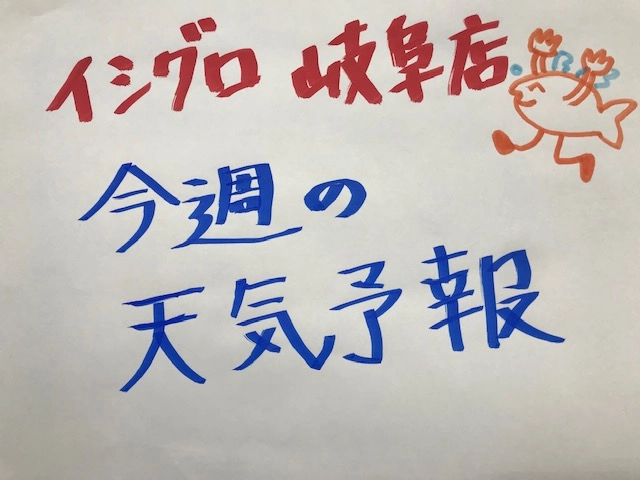 イシグロ 岐阜店
今週の
天気予報